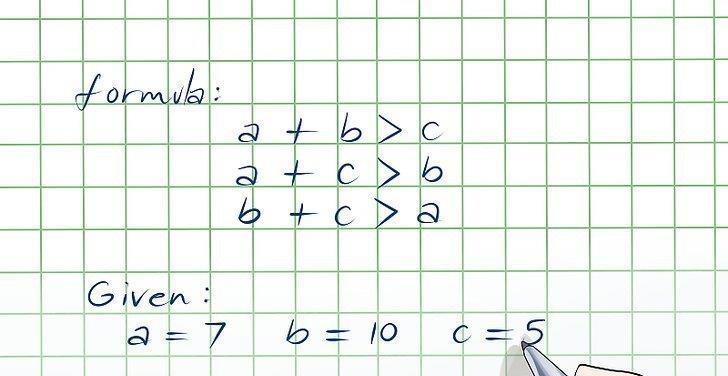 formula:
a + b > c
a + c > b
b + c > a
Given:
a = 7 b = 10 c = 5